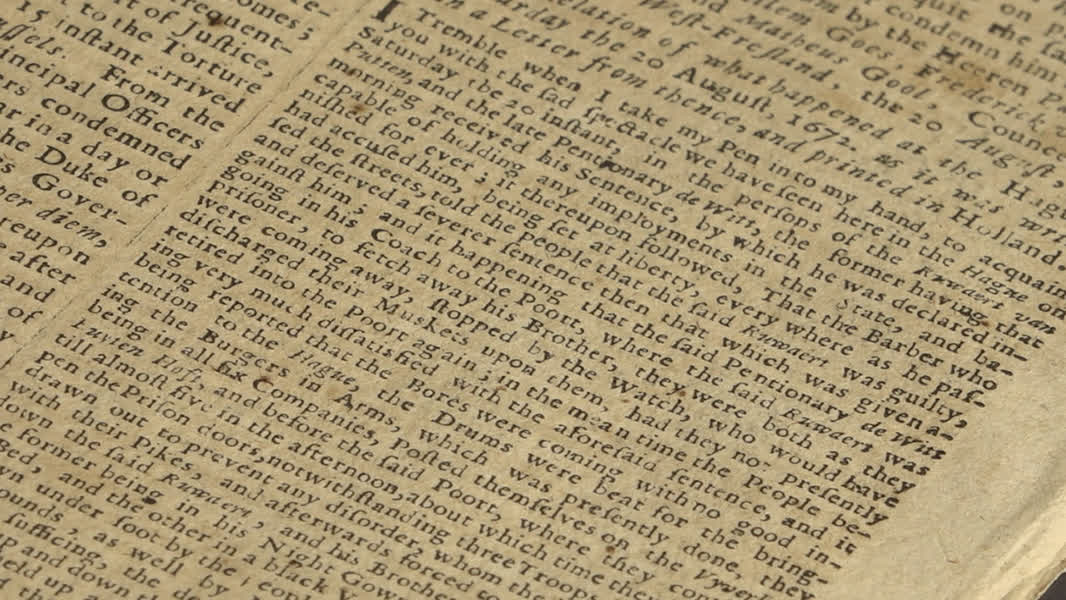 omes;
requent-
rt of Juſtice,
t to the Torture
15 inſtant arrived
ſſels. From the
incipal Officers
rs condemned
ar in a day or
the Duke of
s Gover-
er diem,
reupon
after
and
of
on
quit the ſa
condemn him
by the Heeren
Goes, Frederick
nd Matheus Gool, Counce
Weſt-Freſland, the 20 Auguſt,
Relation of what happened at the Hague
the 20 Auguſt, 1672. as it was wri
in a Letter from thence, and printed in Holland.
I Tremble when I take my Pen into my hand, to acquain
you with the ſad ſpectacle we have ſeen here in the Hague on
Saturday the 20 inſtant, in the perſons of the Ruwaert van
Putten, and the late Pentionary de Witt, the former having that
morning received his Sentence, by which he was declared in-
capable of holding any imployments in the State, and ba-
niſhed for ever; it thereupon followed, That the Barber who
had accuſed him, being ſet at liberty, every where as he paſ-
ſed the ſtreets, told the people that the ſaid Ruwaert was guilty,
and deſerved a ſeverer ſentence then that which was given a-
gainſt him; and it happening that the ſaid Pentionary de Witt
going in his Coach to the Poort, where the ſaid Ruwaert was
priſoner, to fetch away his Brother, they were both as they
were coming away, ſtopped by the Watch, who would have
diſcharged their Muskets upon them, had they no preſently
retired into the Poort again; in the mean time the People be-
ing very much diſſatisfied with the aforeſaid ſentence, and it
being reported that the Bores were coming with no good in-
tention to the Hague, the Drums were beat for the bring-
ing the Burgers in Arms, which was preſently done, they
being in all ſix Companies, poſted themſelves on the Vyver
and before the ſaid Poort, where they con
till almoſt five in the afternoon, about which time the
pen the Priſon doors, notwithſtanding three Troops
drawn out to prevent any diſorder, whom the
with their Pikes, and afterwards forced
down the ſaid Ruwaert, and his Brothe
e former being in his Night Gow
ed, and the other in a black
en under foot by the
ounds, as well by
ſufficing, the
and down
eld up